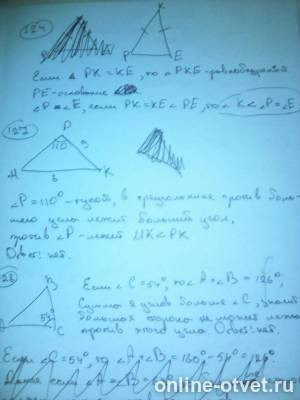 124
K
P E
Если в PK=KE, то ∠PKE-равнобедренный
PE-основание
∠P=∠E, если PK=KE<PE, то ∠K<∠P=∠E
127
P
110
M K
∠P=110°-тупой, в треугольнике против боль-
шего угла лежит больший угол,
против ∠P-лежит MK<PK
Ответ: нет.
128
B
54°
A C
Если ∠C=54°, то ∠A+∠B=126°,
Сумма 2 углов больше ∠C, значит
большая сторона не может лежать
против этого угла. Ответ: нет.
Если ∠C=54°, то ∠A+∠B=180°-54°=126°.
если ∠A=∠B=
online-otvet.ru